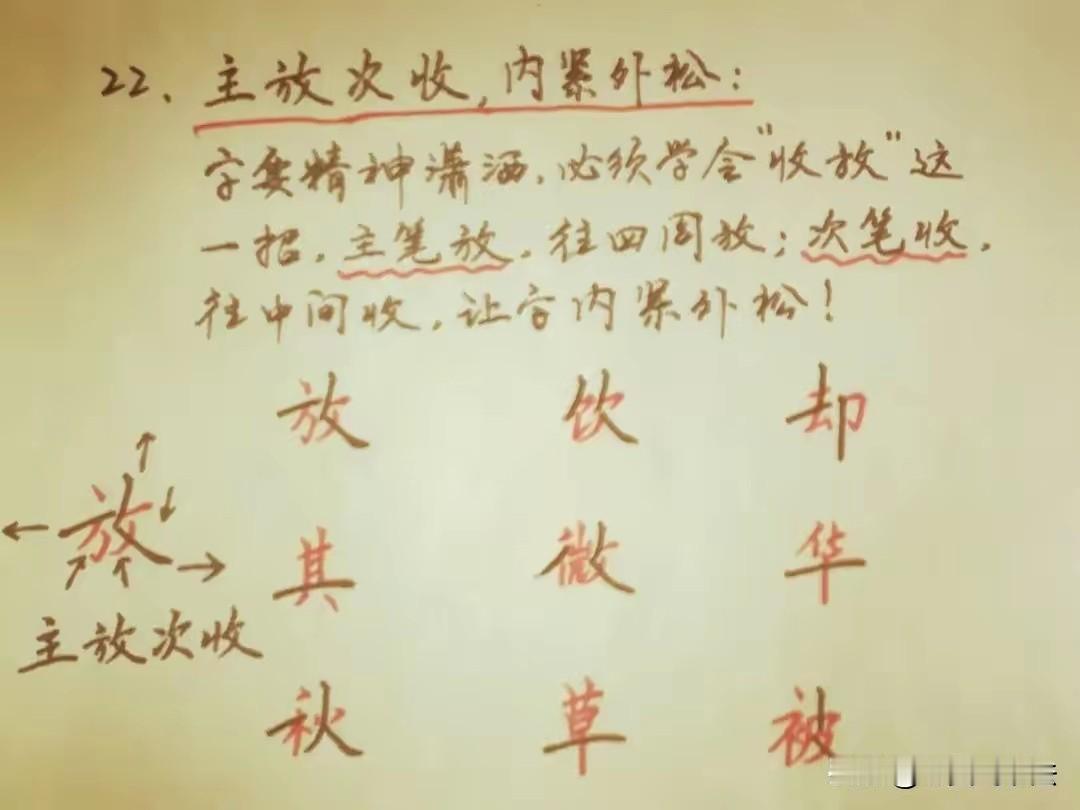 22、主放次收，内紧外松：
字要精神潇洒，必须学会“收放”这
一招，主笔放，往四周放；次笔收，
往中间收，让字内紧外松！
放 饮 却
放
其 微 华
主放次收
秋 草 被